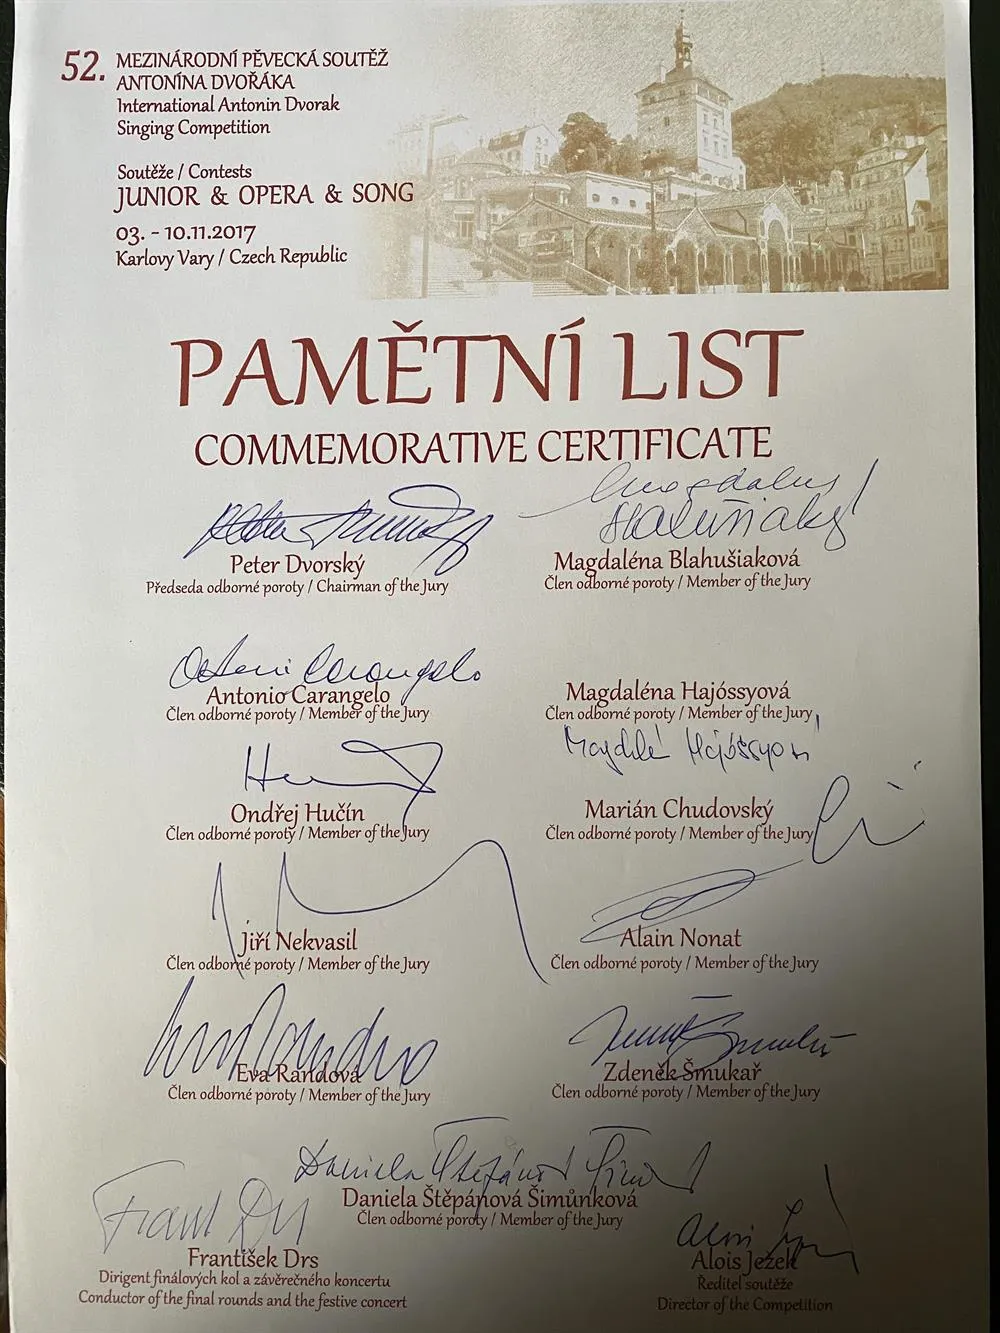 52. MEZINÁRODNÍ PĚVECKÁ SOUTĚŽ
ANTONÍNA DVOŘÁKA
International Antonin Dvorak
Singing Competition
Soutěže / Contests
JUNIOR & OPERA & SONG
03. - 10.11.2017
Karlovy Vary / Czech Republic
PAMĚTNÍ LIST
COMMEMORATIVE CERTIFICATE
Peter Dvorský
Předseda odborné poroty / Chairman of the Jury
Magdaléna Blahušiaková
Člen odborné poroty / Member of the Jury
Carangelo
Antonio Carangelo
Člen odborné poroty / Member of the Jury
Magdaléna Hajóssyová
Člen odborné poroty / Member of the Jury
Ondřej Hučín
Člen odborné poroty / Member of the Jury
Marián Chudovský
Člen odborné poroty / Member of the Jury
Jiří Nekvasil
Člen odborné poroty / Member of the Jury
Alain Nonat
Člen odborné poroty / Member of the Jury
Eva Randová
Člen odborné poroty / Member of the Jury
Zdeněk Šmukař
Člen odborné poroty / Member of the Jury
Daniela Štěpánová
Daniela Štěpánová Šimůnková
Člen odborné poroty / Member of the Jury
František Drs
Dirigent finálových kol a závěrečného koncertu
Conductor of the final rounds and the festive concert
Alois Ježek
Ředitel soutěže
Director of the Competition